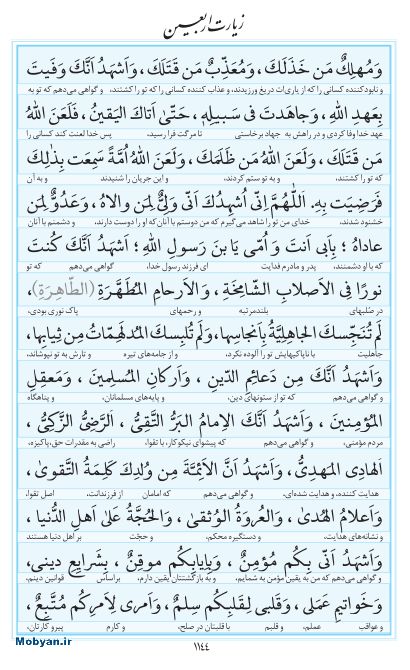 زیارت اربعین
وَمُهلِكٌ مَن خَذَلَكَ ، وَمُعَذِّبٌ مَن قَتَلَكَ ، وَاَشهَدُ اَنَّكَ وَفَیتَ
و نابودکننده کسانی را که از یاری‌ات دریغ ورزیدند، و عذاب کننده کسانی را که تو را کشتند، و گواهی می‌دهم که تو به
بِعَهدِ اللهِ ، وَجاهَدتَ فی سَبیلِهِ ، حَتّیٰ اَتاكَ الیَقینُ ، فَلَعَنَ اللهُ
عهد خدا وفا کردی و در راهش به جهاد برخاستی تا مرگت فرا رسید، پس خدا لعنت کند کسانی را
مَن قَتَلَكَ ، وَلَعَنَ اللهُ مَن ظَلَمَكَ ، وَلَعَنَ اللهُ اُمَّةً سَمِعَت بِذٰلِكَ
که تو را کشتند، و به تو ستم کردند، و این جریان را شنیدند و به آن
فَرَضِیَت بِهِ. اَللّٰهُمَّ اِنّی اُشهِدُكَ اَنّی وَلِیٌّ لِمَن والاهُ ، وَعَدُوٌّ لِمَن
خشنود شدند، خدای من تو را شاهد می‌گیرم که من دوستم با آنان که او را دوست دارند، و دشمنم با آنان
عاداهُ ؛ بِاَبی اَنتَ وَ اُمّی یَا بنَ رَسولِ اللهِ ؛ اَشهَدُ اَنَّكَ كُنتَ
که با او دشمنند، پدر و مادرم فدایت ای فرزند رسول خدا، گواهی می‌دهم که تو
نورًا فِی الاَصلابِ الشّامِخَةِ ، وَ الاَرحامِ المُطَهَّرَةِ (الطّاهِرَةِ)،
در صلبهای بلندمرتبه و رحمهای پاک نوری بودی،
لَم تُنَجِّسكَ الجاهِلِیَّةُ بِاَنجاسِها، وَلَم تُلبِسكَ المُدلَهِمّاتُ مِن ثِیابِها،
جاهلیت با ناپاکیهایش تو را آلوده نکرد، و از جامه‌های تیره و تارش به تو نپوشاند،
وَاَشهَدُ اَنَّكَ مِن دَعائِمِ الدّینِ ، وَاَركانِ المُسلِمینَ ، وَمَعقِلِ
و گواهی می‌دهم که تو از ستونهای دین، و پایه‌های مسلمانان، و پناهگاه
المُؤمِنینَ ، وَاَشهَدُ اَنَّكَ الاِمامُ البَرُّ التَّقِیُّ ، الرَّضِیُّ الزَّكِیُّ ،
مردم مؤمنی، و گواهی می‌دهم که پیشوای نیکوکار، با تقوا، راضی به مقدرات حق، پاکیزه،
الهادِی المَهدِیُّ ، وَاَشهَدُ اَنَّ الاَئِمَّةَ مِن وُلدِكَ كَلِمَةُ التَّقویٰ ،
هدایت کننده، و هدایت شده‌ای، و گواهی می‌دهم که امامان از فرزندانت، اصل تقوا،
وَاَعلامُ الهُدیٰ ، وَالعُروَةُ الوُثقیٰ ، وَالحُجَّةُ عَلیٰ اَهلِ الدُّنیا ،
و نشانه‌های هدایت، و دستگیره محکم، و حجّت بر اهل دنیا هستند
وَاَشهَدُ اَنّی بِكُم مُؤمِنٌ ، وَبِاِیابِكُم موقِنٌ ، بِشَرایِعِ دینی،
و گواهی می‌دهم که من به یقین مؤمن به شمایم، و به بازگشتتان یقین دارم، براساس قوانین دینم،
وَخَواتیمِ عَمَلی ، وَقَلبی لِقَلبِكُم سِلمٌ ، وَاَمری لِاَمرِكُم مُتَّبِعٌ ،
و عواقب عملم، و قلبم با قلبتان در صلح، و کارم پیرو کارتان،
١١٤٤
Mobyan.ir